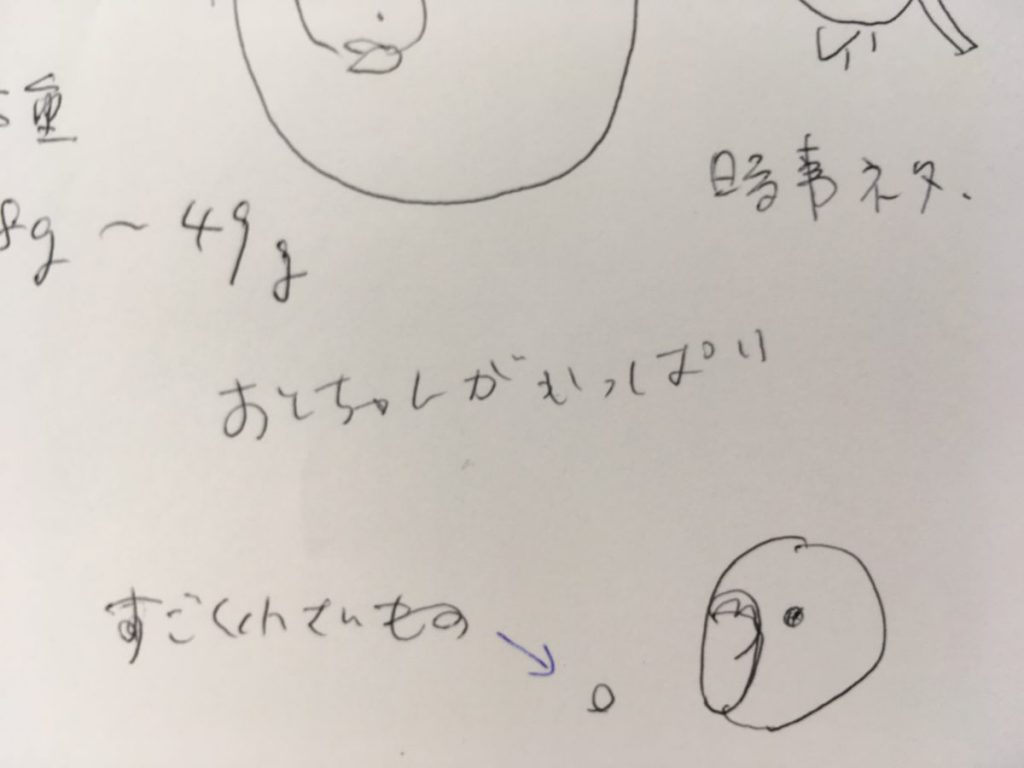 重
時事ネタ.
8g～49g
おとちゃんがいっぱい
すごく もの